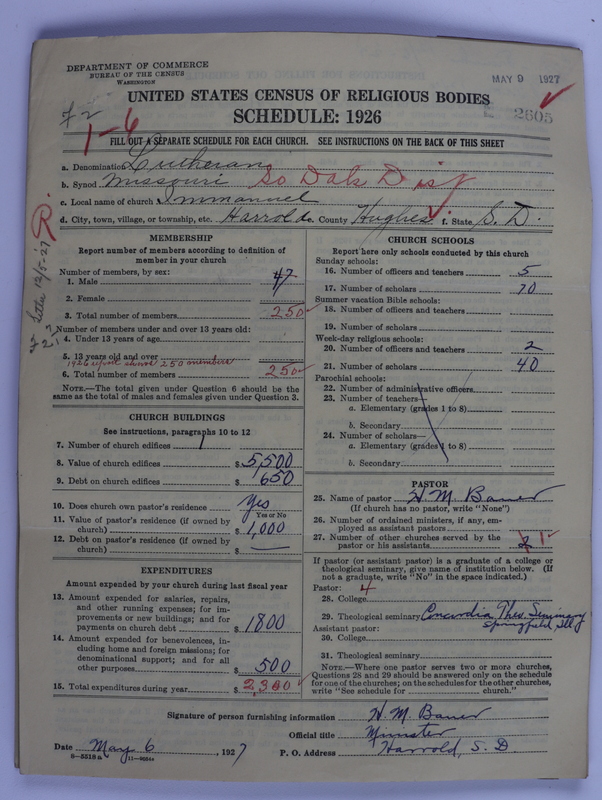 DEPARTMENT OF COMMERCE
BUREAU OF THE CENSUS
WASHINGTON
MAY 9 1927
2605
UNITED STATES CENSUS OF RELIGIOUS BODIES
SCHEDULE: 1926
1-6
FILL OUT A SEPARATE SCHEDULE FOR EACH CHURCH. SEE INSTRUCTIONS ON THE BACK OF THIS SHEET
a. Denomination Lutheran
b. Synod Missouri So Dak Dist
c. Local name of church Immanuel
d. City, town, village, or township, etc. Harrold e. County Hughes f. State S. D.
R.
MEMBERSHIP
Report number of members according to definition of
member in your church
Number of members, by sex:
1. Male 47
2. Female
3. Total number of members 250
Number of members under and over 13 years old:
4. Under 13 years of age
5. 13 years old and over
1926 report shows 250 members
6. Total number of members 250
NOTE.—The total given under Question 6 should be the
same as the total of males and females given under Question 3.
CHURCH BUILDINGS
See instructions, paragraphs 10 to 12
7. Number of church edifices 1
8. Value of church edifices $ 5,500
9. Debt on church edifices $ 1650
10. Does church own pastor's residence yes
Yes or No
11. Value of pastor's residence (if owned by
church) $ 1,000
12. Debt on pastor's residence (if owned by
church) $ —
EXPENDITURES
Amount expended by your church during last fiscal year
13. Amount expended for salaries, repairs,
and other running expenses; for im-
provements or new buildings; and for
payments on church debt $ 1800
14. Amount expended for benevolences, in-
cluding home and foreign missions; for
denominational support; and for all
other purposes $ 500
15. Total expenditures during year $ 2,300
CHURCH SCHOOLS
Report here only schools conducted by this church
Sunday schools:
16. Number of officers and teachers 5
17. Number of scholars 70
Summer vacation Bible schools:
18. Number of officers and teachers
19. Number of scholars
Week-day religious schools:
20. Number of officers and teachers 2
21. Number of scholars 40
Parochial schools:
22. Number of administrative officers
23. Number of teachers—
a. Elementary (grades 1 to 8)
b. Secondary
24. Number of scholars—
a. Elementary (grades 1 to 8)
b. Secondary
PASTOR
25. Name of pastor H. M. Bauer
(If church has no pastor, write "None")
26. Number of ordained ministers, if any, em-
ployed as assistant pastors
27. Number of other churches served by the
pastor or his assistants 1
If pastor (or assistant pastor) is a graduate of a college or
theological seminary, give name of institution below. (If
not a graduate, write "No" in the space indicated.)
Pastor: 4
28. College
29. Theological seminary Concordia Theo Seminary
Springfield, Ill
Assistant pastor:
30. College
31. Theological seminary
NOTE.—Where one pastor serves two or more churches,
Questions 28 and 29 should be answered only on the schedule
for one of the churches; on the schedules for the other churches,
write "See schedule for church."
Signature of person furnishing information H. M. Bauer
Official title Minister
Date May 6, 1927 P. O. Address Harrold, S. D
8—5518a 11—9664